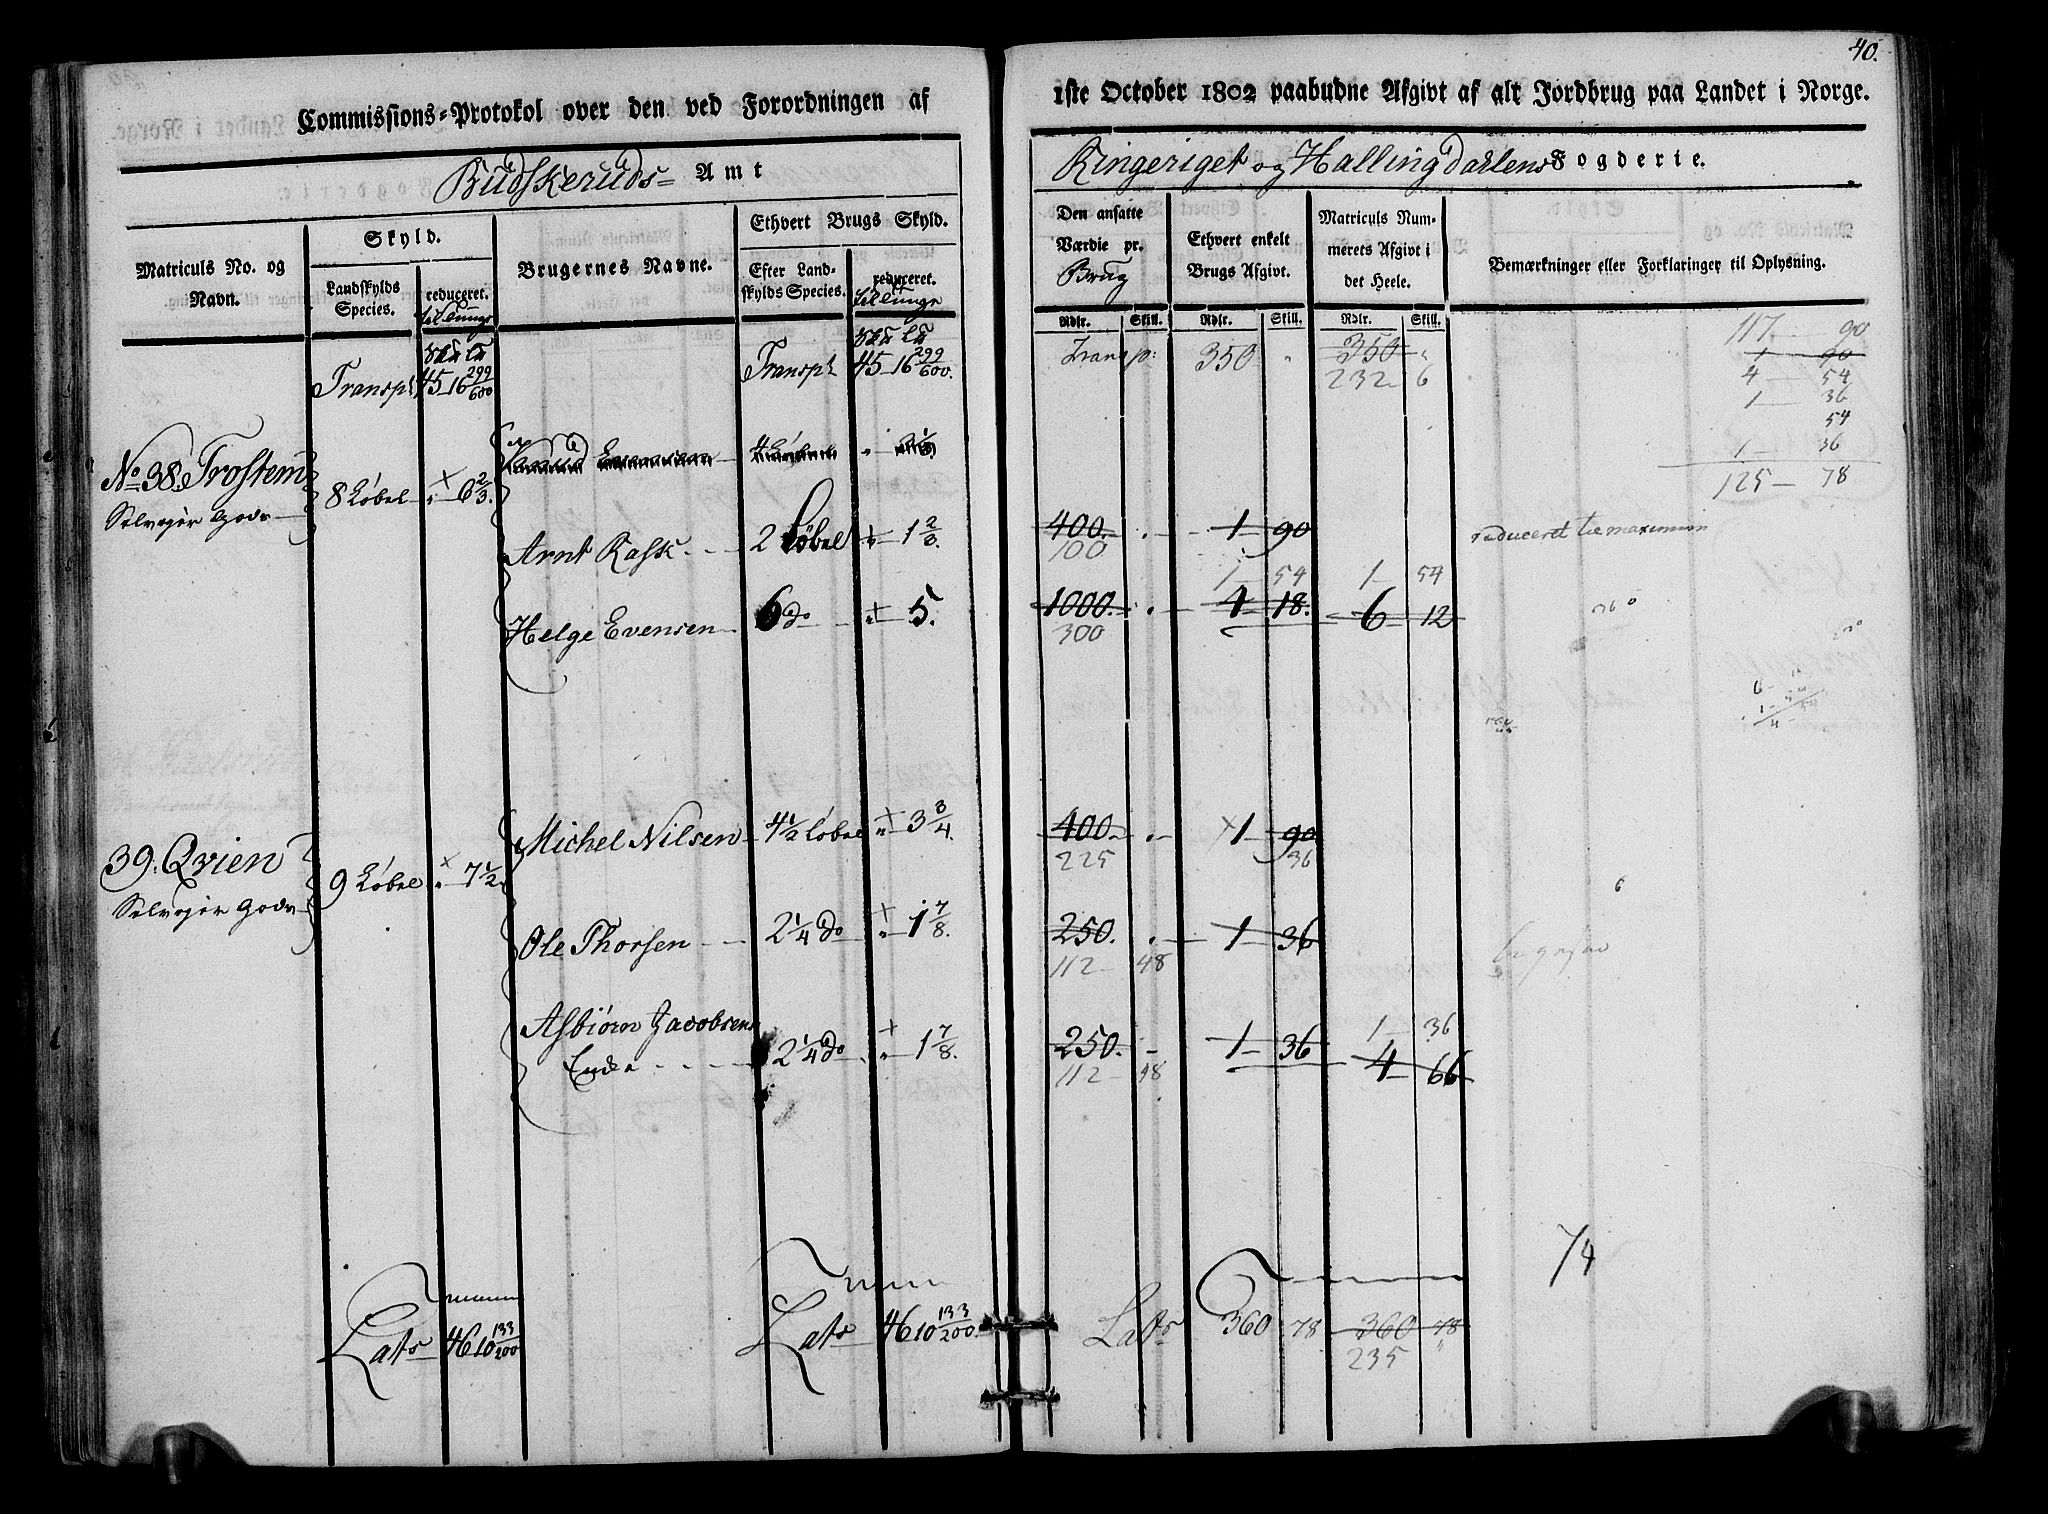 40.
Commissions-Protokol over den ved Forordningen af
1ste October 1802 paabudne Afgivt af alt Jordbrug paa Landet i Norge.
Budskeruds Amt
Ringeriget og Hallingdahlens Fogderie.
Matriculs No. og Navn.
Skyld.
Landskylds Species.
reduceret.
Brugernes Navne.
Ethvert Brugs Skyld.
Efter Landskylds Species.
reduceret.
Den ansatte Værdie pr. Brug
Ethvert enkelt Brugs Afgivt.
Matriculs Nummerets Afgivt i det Heele.
Bemærkninger eller Forklaringer til Oplysning.
Rdlr. Skill. Rdlr. Skill. Rdlr. Skill.
Transpt 45 16 299/600 Transpt 45 16 299/600. Transp: 350 " 350 "
232 6
117 90
1 90
4 54
1 36
54
1 36
125 78
No 38. Trostem 8 Løbel " 6 2/3.
Selveyer Gods
Evensen 4
Arnt Rask 2 Løbel " 1 2/3. 400. 1 90 reduceret til maximum
100
1 54 1 54
Helge Evensen 6 do " 5. 1000. 4 18. 6 12
300
39. Qvien 9 Løbel " 7 1/2
Selveyer Gods
Michel Nilsen 4 1/2 Løbel " 3 3/4. 400 1 90
225 36
Ole Thorsen 2 1/4 do " 1 7/8. 250. 1 36
112 48
Asbiørn Jacobsens 1 36
Enke 2 1/4 do " 1 7/8. 250. 1 36 4 66
112 48
74
Lats 46 10 133/200 Lats 46 10 133/200. Lats 360 78 360 78
235 "